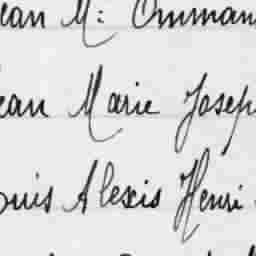 ean M: Omman
ean Marie Josep
ouis Alexis Henri